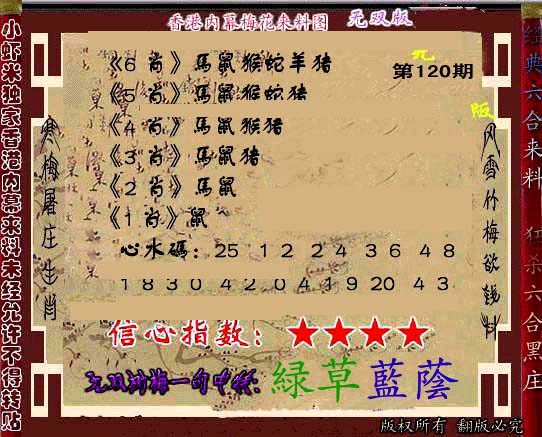 香港内幕梅花来料图 无双版
第120期
版
《6 肖》馬鼠猴蛇羊猪
《5 肖》馬鼠猴蛇猪
《4 肖》馬鼠猴猪
《3 肖》馬鼠猪
《2 肖》馬鼠
《1 肖》鼠
心水碼：25 12 24 36 48
18 30 42 04 19 20 43
信心指数：★★★★
緑草藍蔭
版权所有 翻版必究
小虾米独家香港内幕来料未经允许不得转贴
寒梅屠庄生肖
风雪竹梅欲钱料
经典六合来料 狂杀六合黑庄